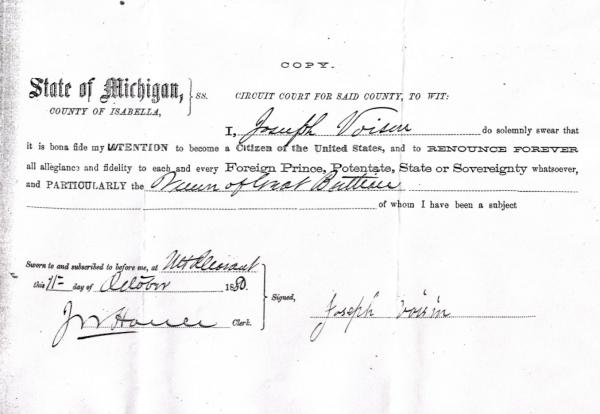 COPY.
State of Michigan, } ss. CIRCUIT COURT FOR SAID COUNTY, TO WIT:
COUNTY OF ISABELLA,
I, Joseph Voisin do solemnly swear that
it is bona fide my INTENTION to become a Citizen of the United States, and to RENOUNCE FOREVER
all allegiance and fidelity to each and every Foreign Prince, Potentate, State or Sovereignty whatsoever,
and PARTICULARLY the Queen of Great Brittian
of whom I have been a subject
Sworn to and subscribed to before me, at Mt Pleasant
this 11 day of October 1880. } Signed, Joseph Voisin
Clerk.